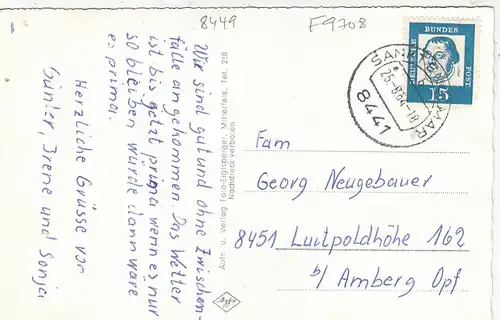 8449
F9708
Wir sind gut und ohne Zwischen-
fälle angekommen. Das Wetter
ist bis jetzt prima wenn es nur
so bleiben würde dann wäre
es prima.
Herzliche Grüsse von
Günter, Irene und Sonja
Aufn. u. Verlag Foto-Eiglsperger, Mitterfels, Tel. 218
Nachdruck verboten
DEUTSCHE BUNDES POST
15
SANKT
26.-8.64-18
8441
Fam
Georg Neugebauer
8451 Luitpoldhöhe 162
b/ Amberg Opf